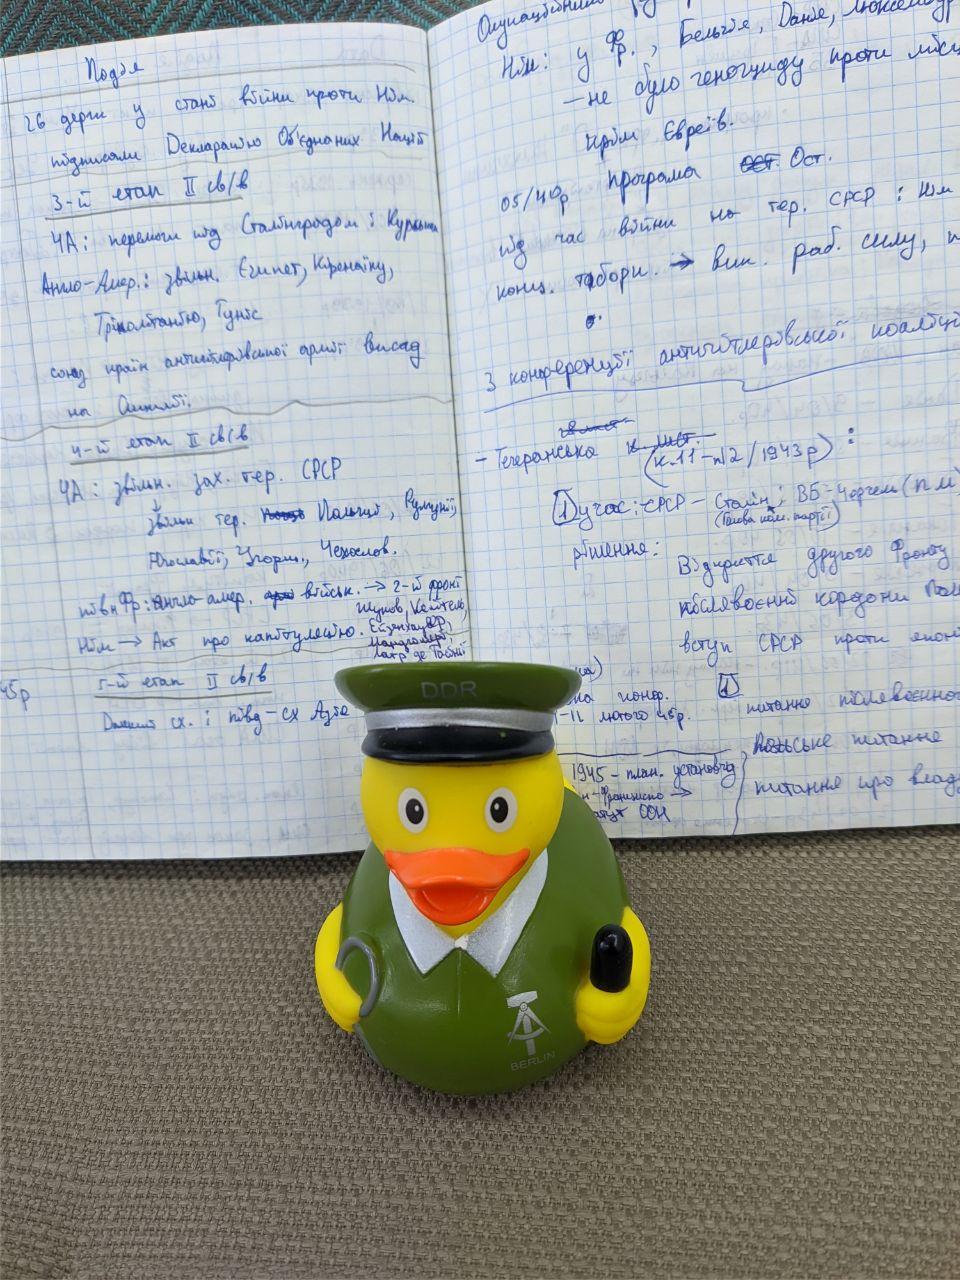 Подія
26 держ у стані війни проти Нім.
підписали Декларацію Об'єднаних Націй
3-й етап II св/в
ЧА: перемоги під Сталінградом і Курськом
Англо-Амер.: звільн. Єгипет, Кіренаїку,
Тріполітанію, Туніс
союз країн антигітлерівської армії висад
на Сицилії.
4-й етап II св/в
ЧА: звільн. зах. тер. СРСР
↓
звільн тер. Польщі, Румунії,
Югославії, Угорщ., Чехослов.
півн Фр: Англо-амер. військ. → 2-й фронт
Нім → Акт про капітуляцію.
Жуков, Кейтель,
Ейзенхауер,
Латр де Тассіні
45р
5-й етап II св/в
Далекий сх. і півд-сх Азія
Окупаційний
Нім: у Фр., Бельгія, Данія, Люксембур
- не було геноциду проти місц
крім Євреїв.
05/40р програма Ост.
під час війни на тер. СРСР: Нім
конц. табори. → вик. раб. силу,
3 конференції антигітлерівської коаліції
- Тегеранська
(к.11-п12/1943р):
1 учас: СРСР - Сталін; ВБ-Черчел (п.м)
(Голова ком. партії)
рішення:
Відкриття другого Фронту
післявоєнні кордони Поль
вступ СРСР проти японі
на конф.
-11 лютого 45р.
питання післявоєнного
Польське питання
питання про влад
1945 - план. установчд
н-Франциско →
статут ООН
DDR
BERLIN